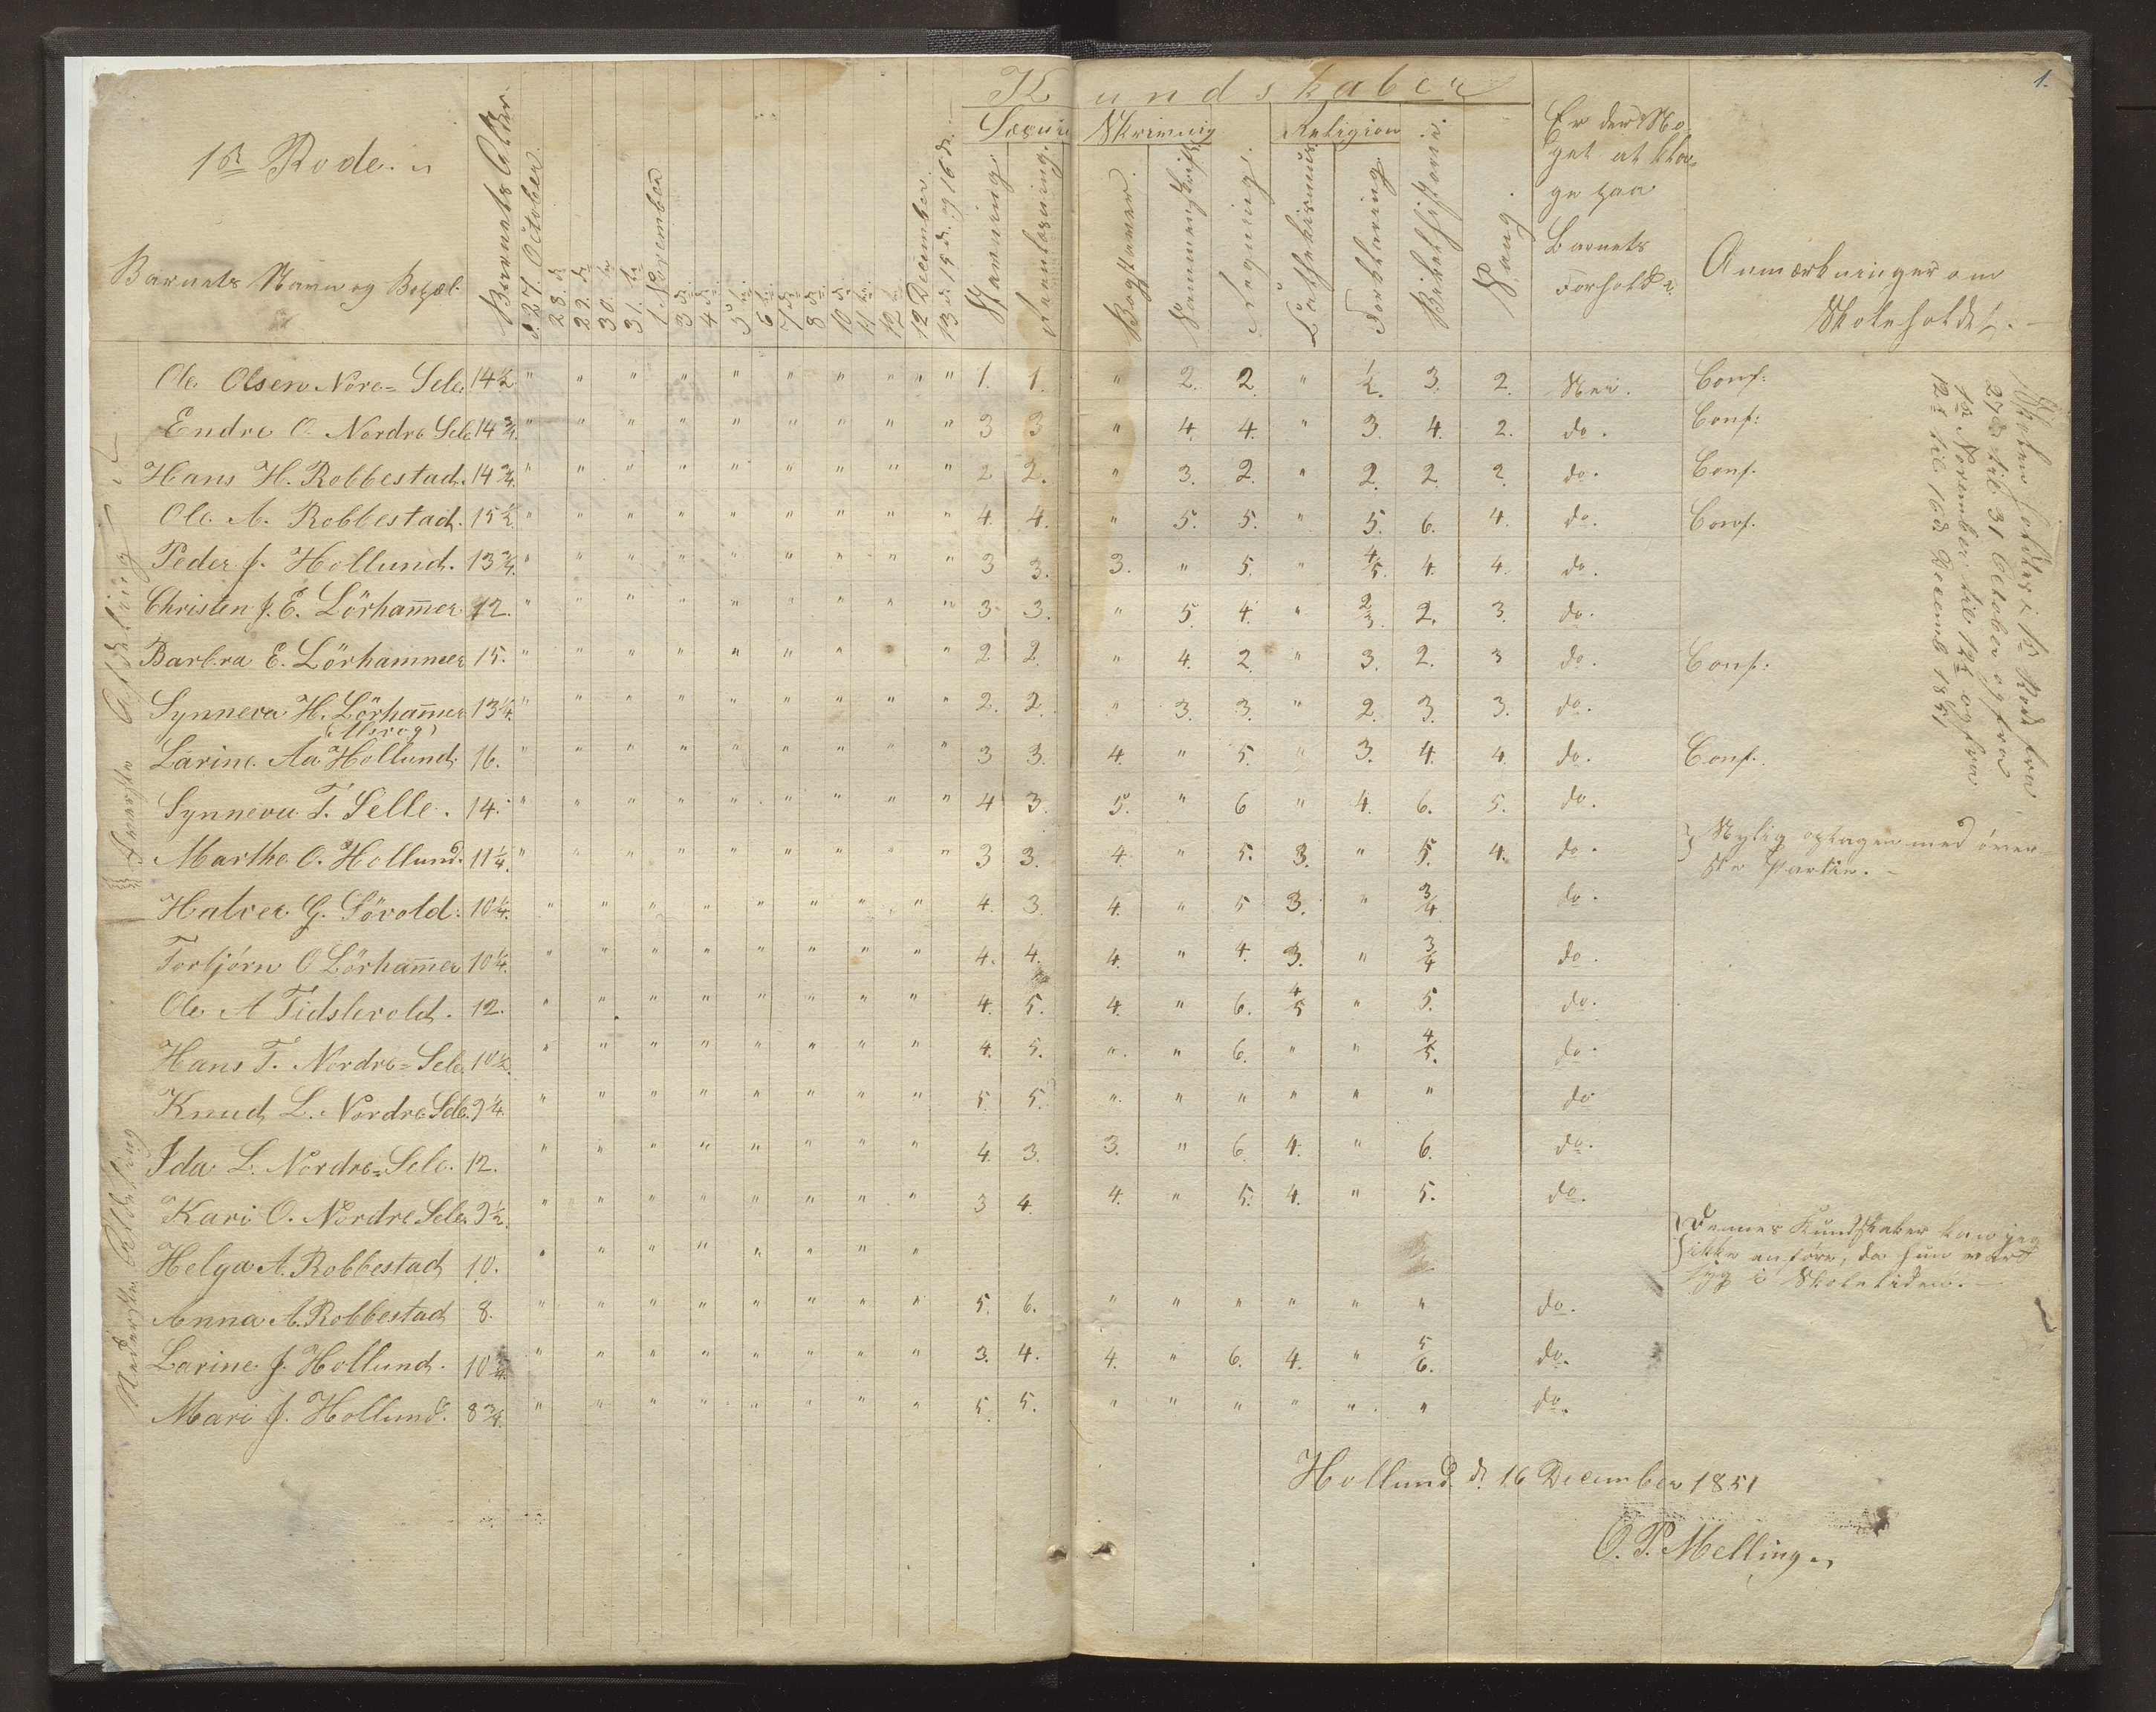 1.
1ste Rode.
Barnets Navn og Bopæl.
Barnets Alder.
d. 27. October.
28. do
29. do
30. do
31. do
1. November
3 do
4 do
5 do
6 do
7 do
8 do
10 do
11 do
12 do
12 December
13 do 15 d. og 16 do.
Kundskaber
Læsning
Skrivning
Religion
Stavning
Reenlæsning.
Bogstaver.
Sammenskrift.
Regning.
Cathekismus
Forklaring
Bibelhistorie.
Sang.
Er der No
get at kla
ge paa
Barnets
Forhold?
Anmærkninger om
Skoleholdet.
Øverste Afdeling
Ole Olsen Nore=Sele 14½ " " " " " " " " " " 1. 1. " 2. 2. " ½. 3. 2. Nei. Conf:
Endre O. Nordre Sele 14¾. " " " " " " " " " 3 3 " 4. 4. " 3. 4. 2. do. Conf:
Hans H. Robbestad. 14¾. " " " " " " " " " 2 2. " 3. 2. " 2. 2. 2. do. Conf.
Ole A. Robbestad. 15½. " " " " " " " " " 4. 4. " 5. 5. " 5. 6. 4. do. Conf.
Peder J. Hollund. 13¾. " " " " " " " " " 3 3. 3. " 5. " 4/5. 4. 4. do.
Christen J. E. Lörham̄er 12. " " " " " " " " " 3 3. " 5. 4. " 2/3. 2. 3. do.
Barbra E. Lörhammer 15. " " " " " " " " 2 2. " 4. 2. " 3. 2. 3 do. Conf:
Synneva H. Lörham̄er 13¼. " " " " " " " " " 2. 2. " 3. 3. " 2. 3. 3. do.
Larine Aa. Hollund 16. " " " " " " " " " 3 3. 4. " 5. " 3. 4. 4. do. Conf.
Synneva T. Selle. 14. " " " " " " " " " 4 3. 5. " 6 " 4. 6. 5. do.
Marthe O. Hollund. 11¼. " " " " " " " " " 3 3. 4. " 5. 3. " 5. 4. do. Nylig optagen med över=
ste Partie.
Nederste Afdeling
Halver G. Sövold. 10¼. " " " " " " " " 4. 3. 4. " 5 3. " 3/4 do.
Torbjörn O Lörham̄er 10¼. " " " " " " " " 4. 4. 4. " 4. 3. " 3/4 do.
Ole A Tidslevold. 12. " " " " " " " " 4. 5. 4. " 6. 4/5 " 5. do.
Hans T. Nordre=Sele. 10½. " " " " " " " " 4. 5. " " 6. " " 4/5. do.
Knud L. Nordre Sele. 9¼. " " " " " " " " 5. 5. " " " " " " do
Ida L. Nordre=Sele. 12. " " " " " " " " 4. 3. 3. " 6. 4. " 6. do.
Kari O. Nordre Sele. 9½. " " " " " " " " 3 4. 4. " 5. 4. " 5. do.
Helga A. Robbestad 10. " " " " " " " " Dennes Kundskaber kan jeg
ikke anföre, da hun vard
syg i Skoletiden.
Anna A. Robbestad 8. " " " " " " " " 5. 6. " " " " " " do.
Larine J. Hollund. 10¼. " " " " " " " " 3. 4. 4. " 6. 4. " 5/6. do.
Mari J. Hollund. 8¾. " " " " " " " " 5. 5. " " " " " " do.
Skolen holdtes i 1ste Rode fra
27de til 31 October og fra
1ste November til 12te og fra
12te til 16de Decemb 1851
Hollund d. 16 December 1851
O. T. Mellingen